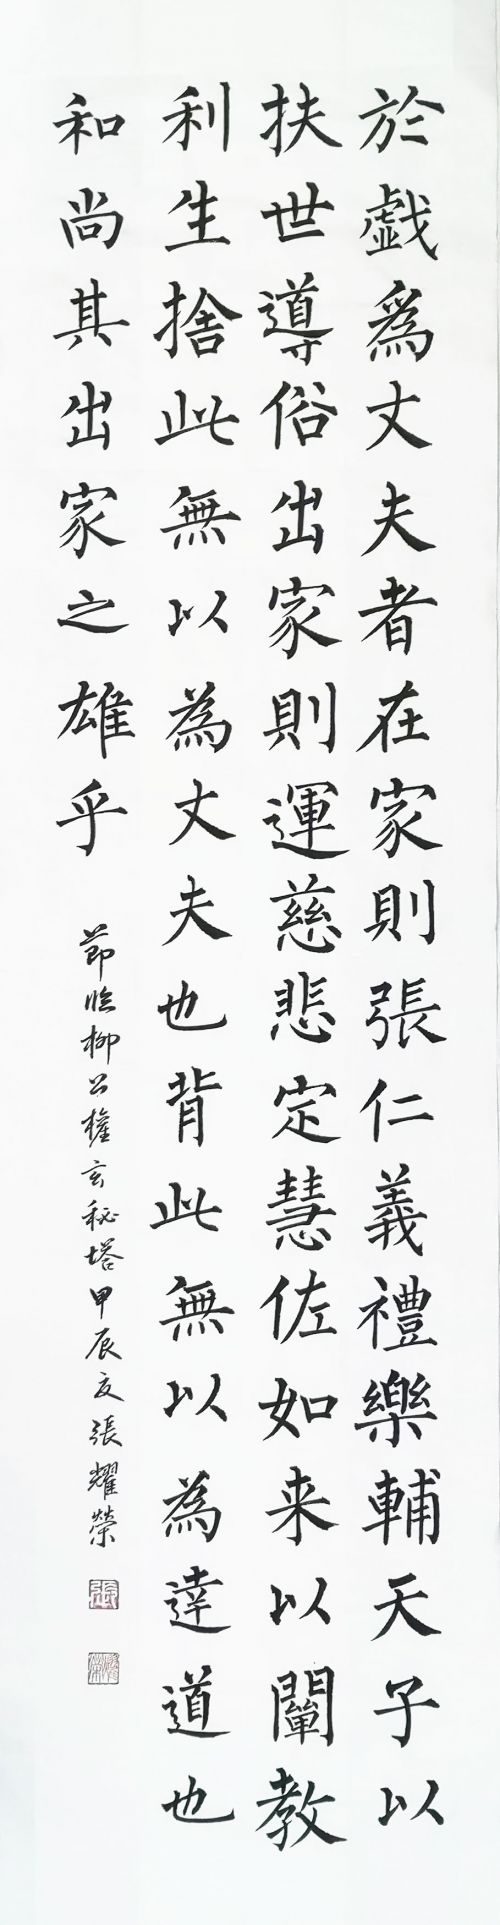 於戯爲丈夫者在家則張仁義禮樂輔天子以
扶世導俗出家則運慈悲定慧佐如来以闡教
利生捨此無以為丈夫也背此無以為達道也
和尚其出家之雄乎
節临柳公權玄秘塔甲辰夏張耀榮